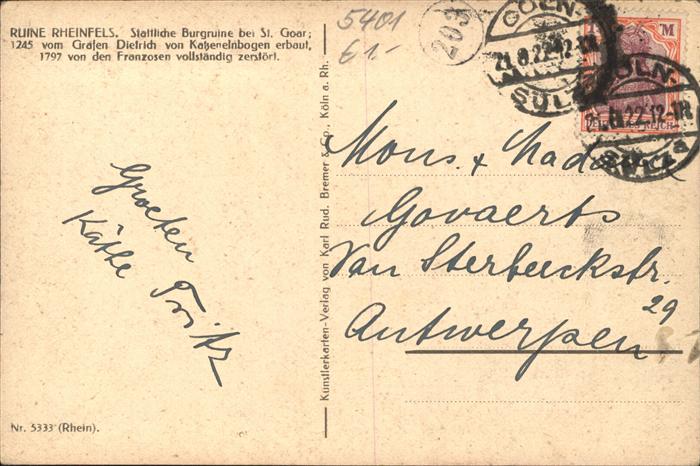 RUINE RHEINFELS. Stattliche Burgruine bei St. Goar;
1245 vom Grafen Dietrich von Katzenelnbogen erbaut,
1797 von den Franzosen vollständig zerstört.
5401
61.-
203
COELN-
21.8.22.12-1N
SÜLZ
M
COELN-
21.8.22.12-1N
SÜLZ
DEUTSCHES REICH
Mons. + Madame
Govaerts
Van Sterbeeckstr.
29
Antwerpen
Groeten
Käthe Fritz
Künstlerkarten-Verlag von Karl Rud. Bremer & Co., Köln a. Rh.
Nr. 5333 (Rhein).